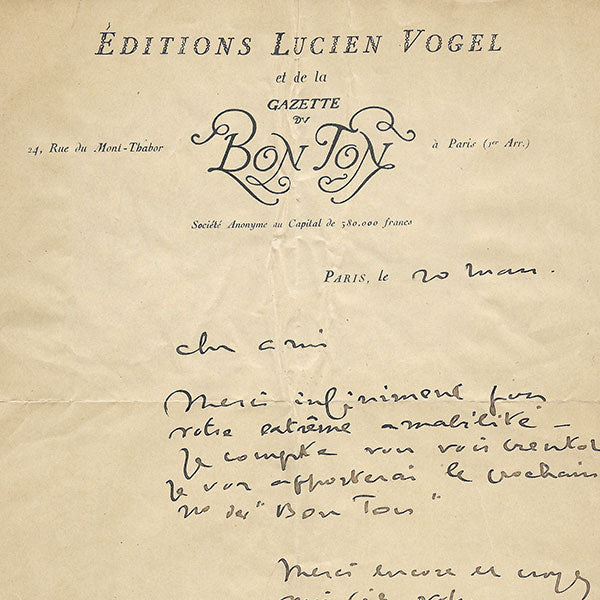 ÉDITIONS LUCIEN VOGEL
et de la
GAZETTE
DU
BON TON
24, Rue du Mont-Thabor
à Paris (1er Arr.)
Société Anonyme au Capital de 580.000 francs
PARIS, le 20 mars.
cher ami
Merci infiniment pour
votre extrême amabilité –
Je compte vous voir bientôt
Je vous apporterai le prochain
no du "Bon Ton"
Merci encore et croyez